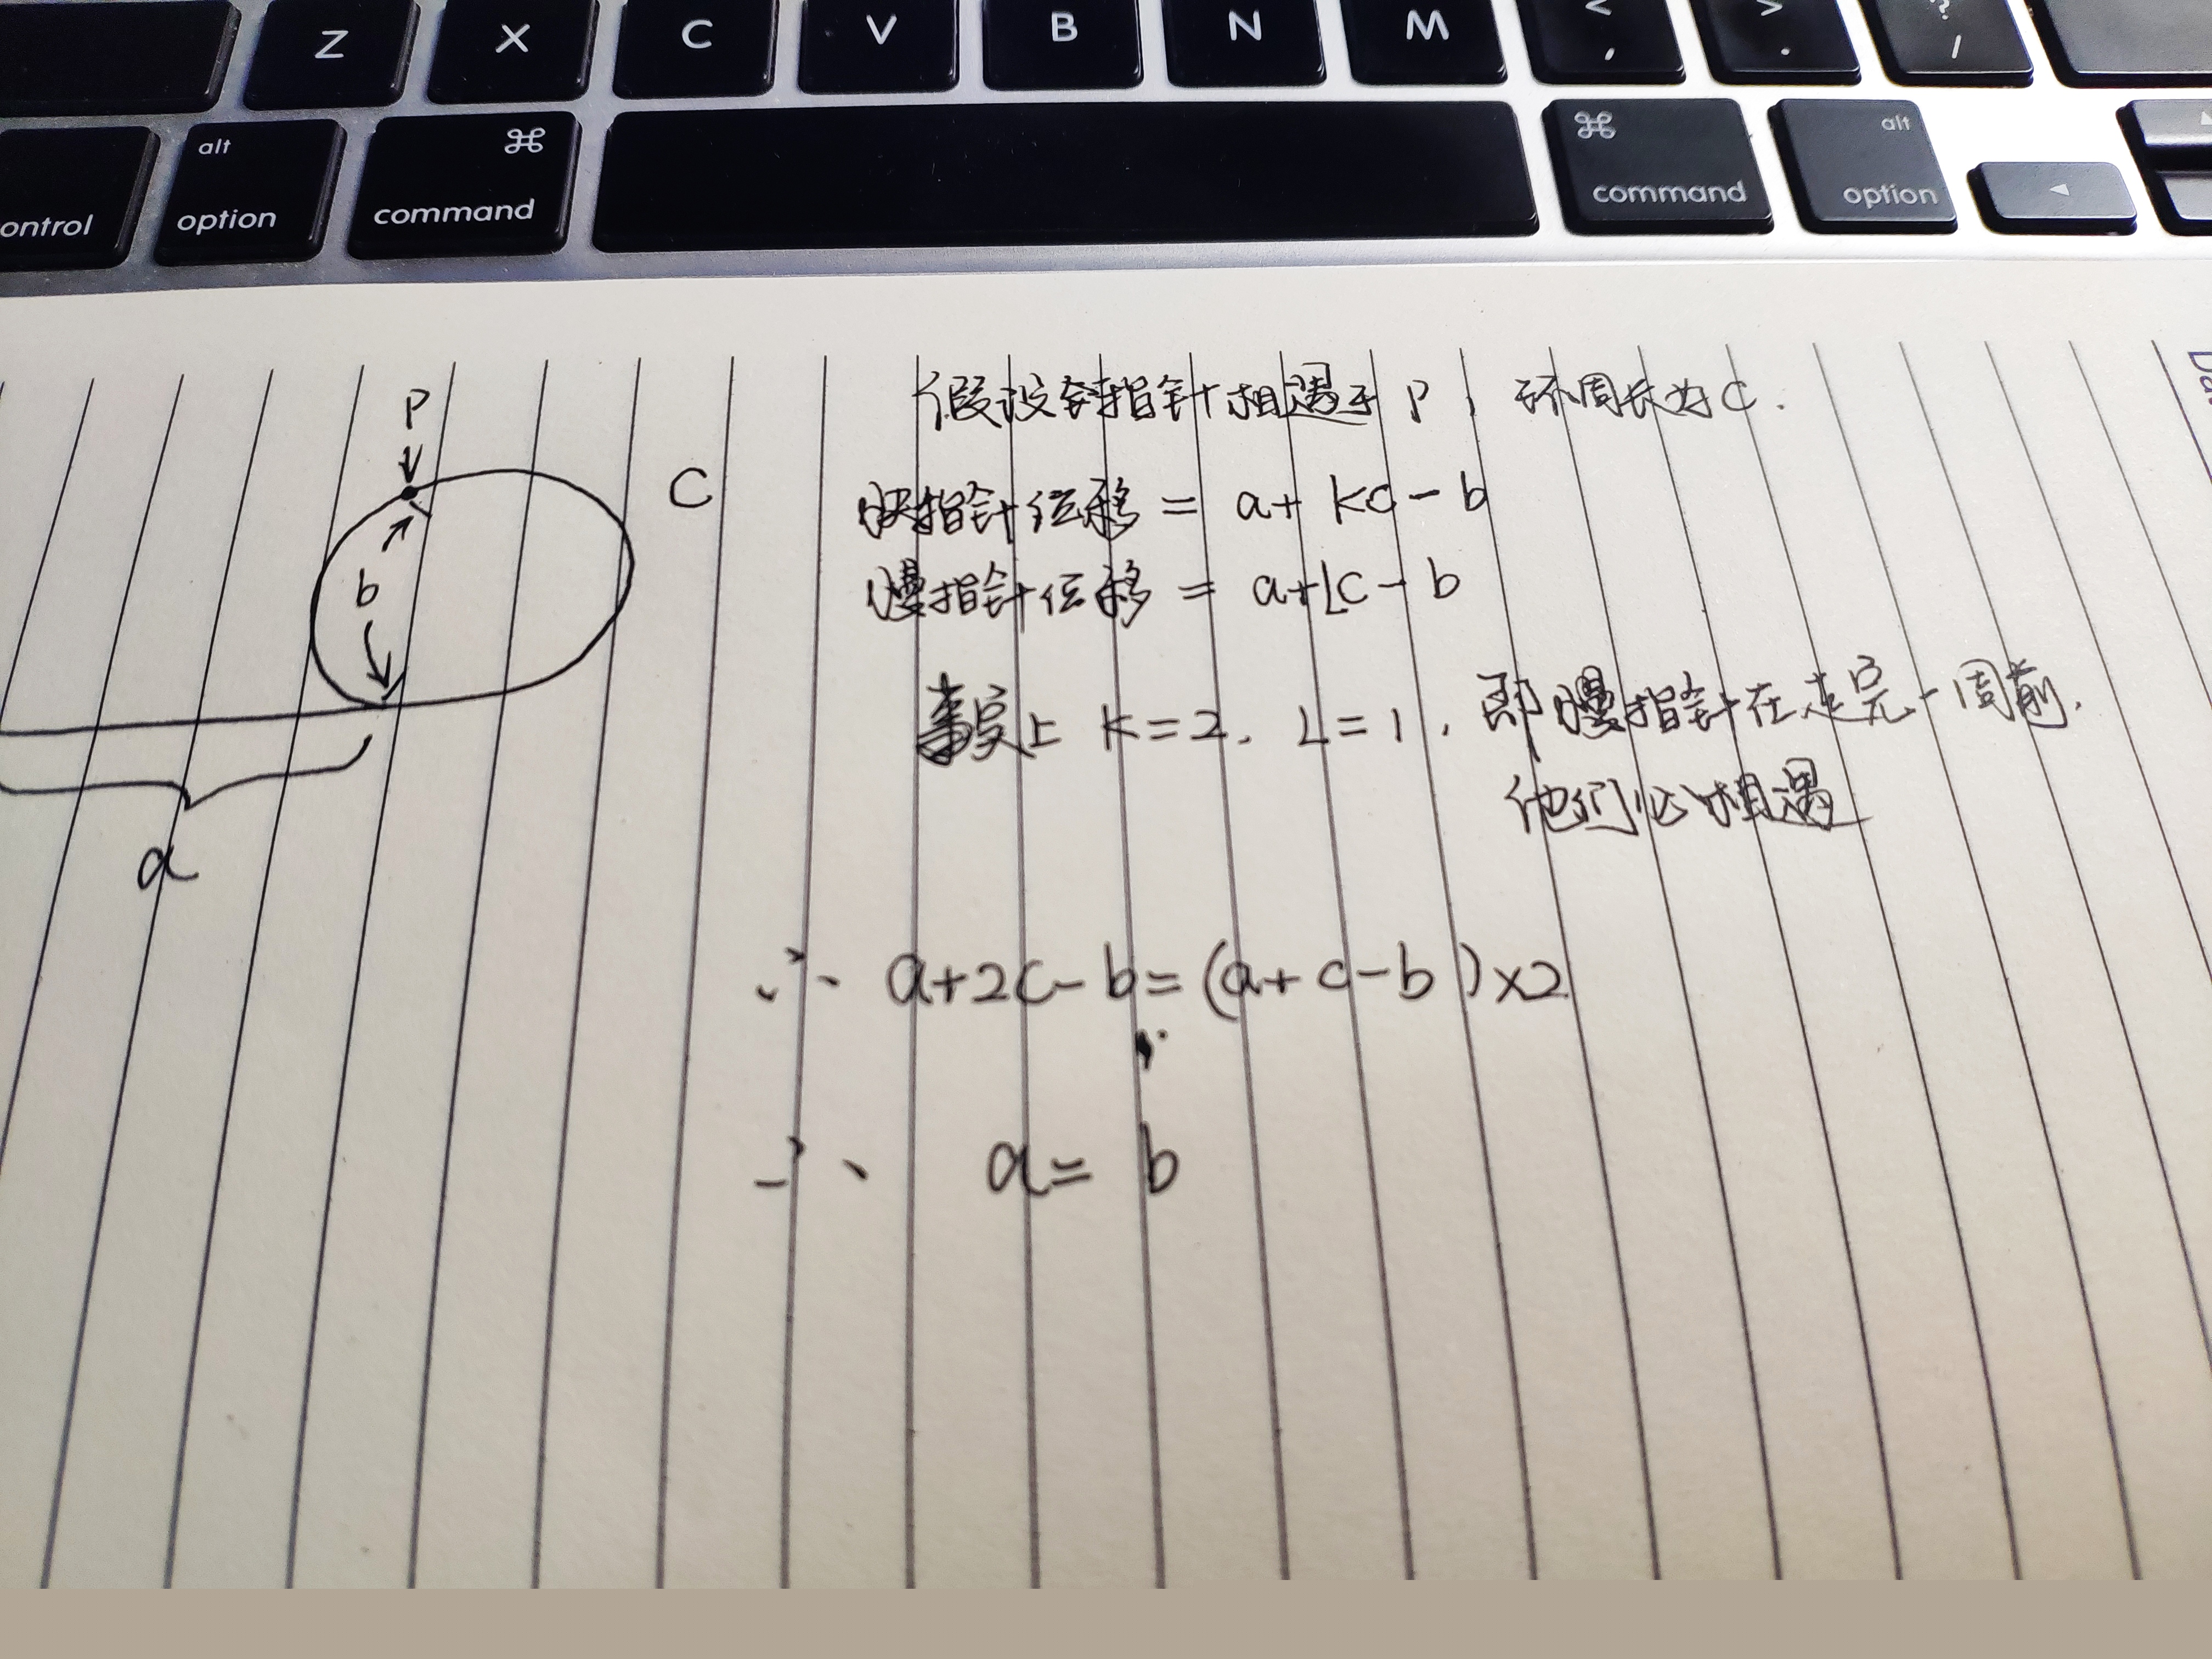 Z X C V B N M < , > . ? /
ontrol alt option ⌘ command ⌘ command alt option ◄
P
C
b
a
假设指针相遇于 P, 环周长为 C.
快指针位移 = a + kc - b
慢指针位移 = a + Lc - b
事实上 k=2. L=1, 即慢指针在走完一周前,
他们必相遇
∴ a+2c-b=(a+c-b)×2
∴ a=b